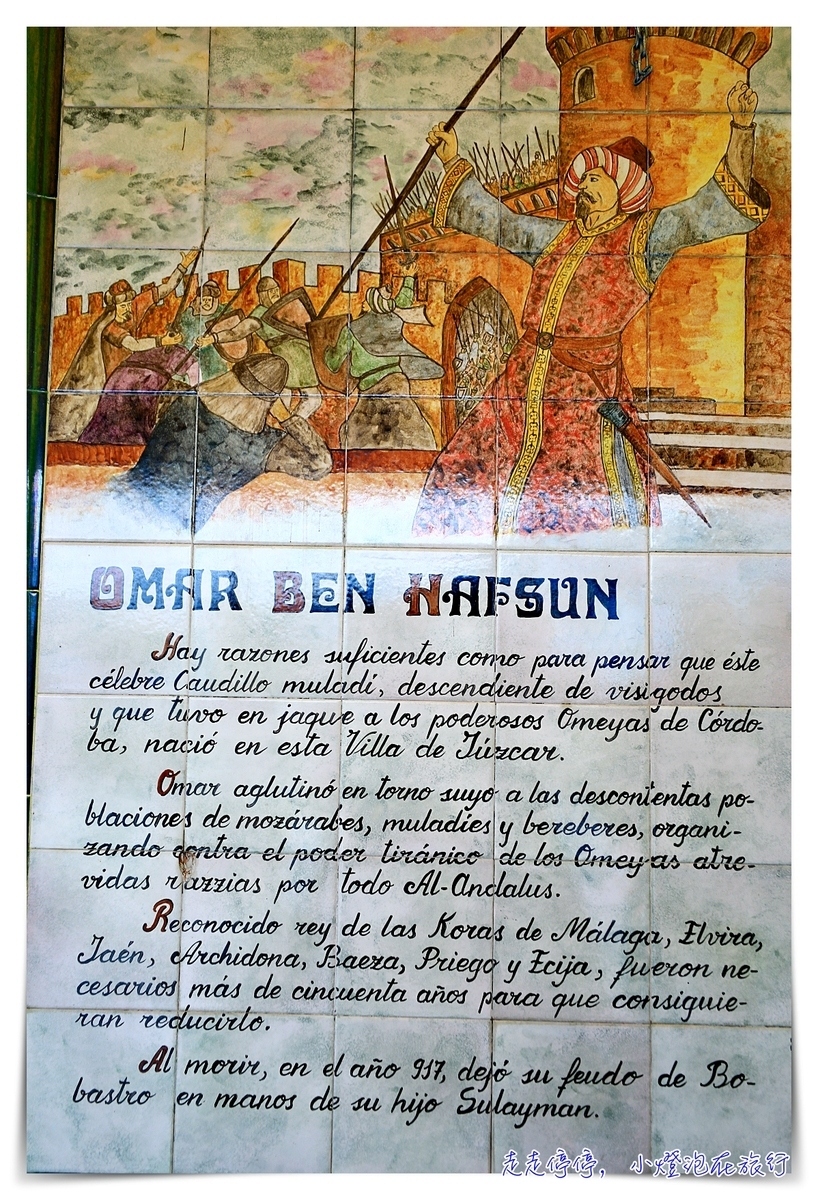 OMAR BEN HAFSUN
Hay razones suficientes como para pensar que éste
célebre Caudillo muladí, descendiente de visigodos
y que tuvo en jaque a los poderosos Omeyas de Córdo-
ba, nació en esta Villa de Júzcar.
Omar aglutinó en torno suyo a las descontentas po-
blaciones de mozárabes, muladíes y bereberes, organi-
zando contra el poder tiránico de los Omeyas atre-
vidas razzias por todo Al-Andalus.
Reconocido rey de las Koras de Málaga, Elvira,
Jaén, Archidona, Baeza, Priego y Ecija, fueron ne-
cesarios más de cincuenta años para que consiguie-
ran reducirlo.
Al morir, en el año 917, dejó su feudo de Bo-
bastro en manos de su hijo Sulayman.
走走停停，小燈泡在旅行